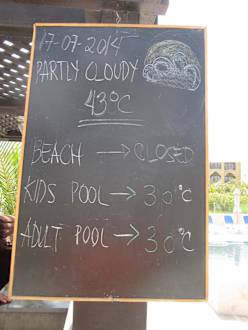 17-07-2014
PARTLY CLOUDY
43°C
BEACH → CLOSED
KIDS POOL → 30°C
ADULT POOL → 30°C